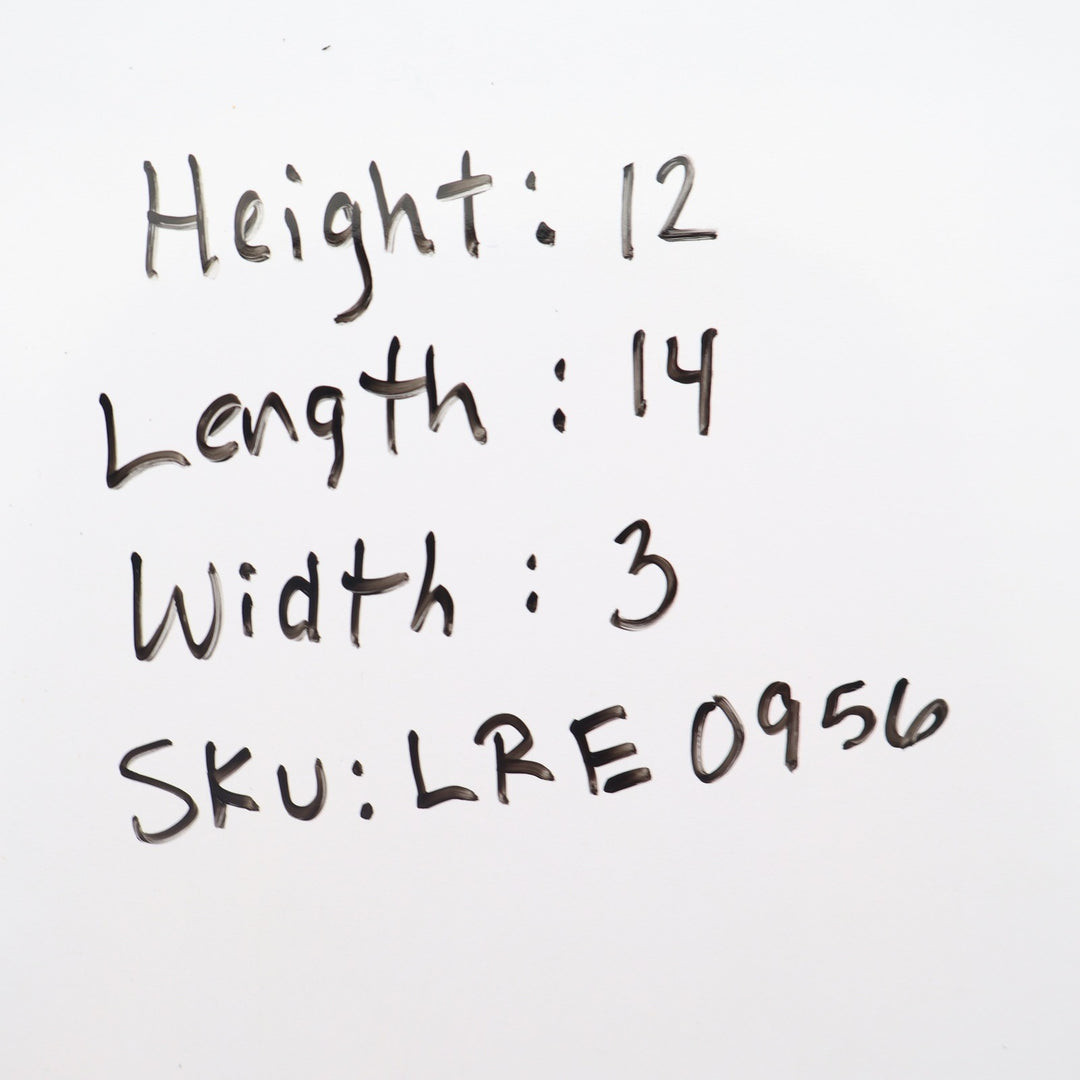 Height: 12
Length: 14
Width: 3
SKU: LRE 0956